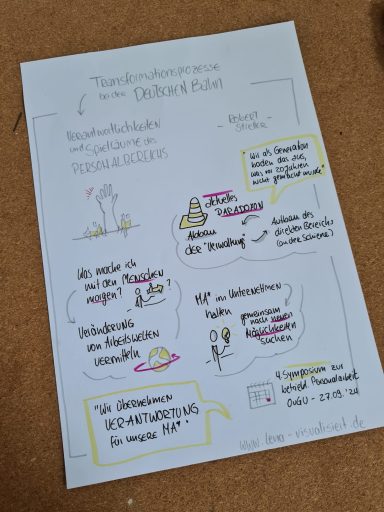 Transformationsprozesse
bei der DEUTSCHEN Bahn
Verantwortlichkeiten
und Spielräume des
PERSONALBEREICHS
- ROBERT
STRELLER -
"Wir als Generation
baden das aus,
was vor 20 Jahren
nicht gemacht wurde"
aktuelles
PARADOXON
Abbau
der "Verwaltung"
Aufbau des
direkten Bereichs
(an der Schiene)
Was mache ich
mit den MENSCHEN
morgen?
?
Veränderung
von Arbeitswelten
vermitteln
MA* im Unternehmen
halten
gemeinsam
nach neuen
Möglichkeiten
suchen
"Wir übernehmen
VERANTWORTUNG
für unsere MA*"
4. Symposium zur
betriebl. Personalarbeit
OvGU - 27.09.'24
www.lena-visualisiert.de